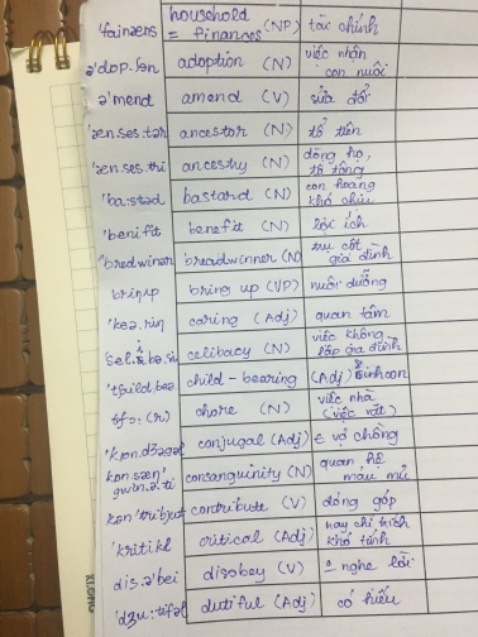 household
'fainæns = finances (NP) tài chính
ə'dɒp.ʃən adoption (N) việc nhận con nuôi
ə'mend amend (V) sửa đổi
'æn.ses.tər ancestor (N) tổ tiên
'æn.ses.tri ancestry (N) dòng họ, tổ tông
'ba:stəd bastard (N) con hoang khó chịu
'benifit benefit (N) lợi ích
'bredwinər breadwinner (N) trụ cột gia đình
briŋup bring up (VP) nuôi dưỡng
'keə.riŋ caring (Adj) quan tâm
celibacy (N) việc không lập gia đình
'tʃaild.beə child-bearing (Adj) sinh con
tʃɔ:(r) chore (N) việc nhà (việc vặt)
'kɒn.dʒəgəl conjugal (Adj) ∈ vợ chồng
kɒn.sæŋ' gwin.ə.ti consanguinity (N) quan hệ máu mủ
kən'tribjut contribute (V) đóng góp
'kritikl critical (Adj) hay chỉ trích khó tính
dis.ə'bei disobey (V) nghe lời
'dʒu:tifəl dutiful (Adj) có hiếu